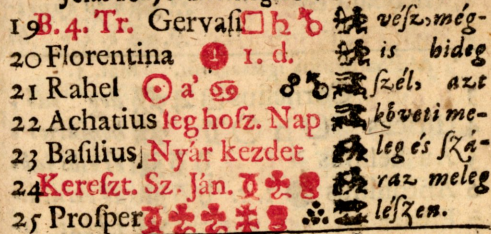 19 B. 4. Tr. Gervaſi □ ♄ véſz, még-
20 Florentina 1. d. is hideg
21 Rahel ☉ a' ♋ ſzél, azt
22 Achatius leg hoſz. Nap követi me-
23 Baſilius Nyár kezdet leg és ſzá-
24 Kereſzt. Sz. Ján. raz meleg
25 Proſper léſzen.